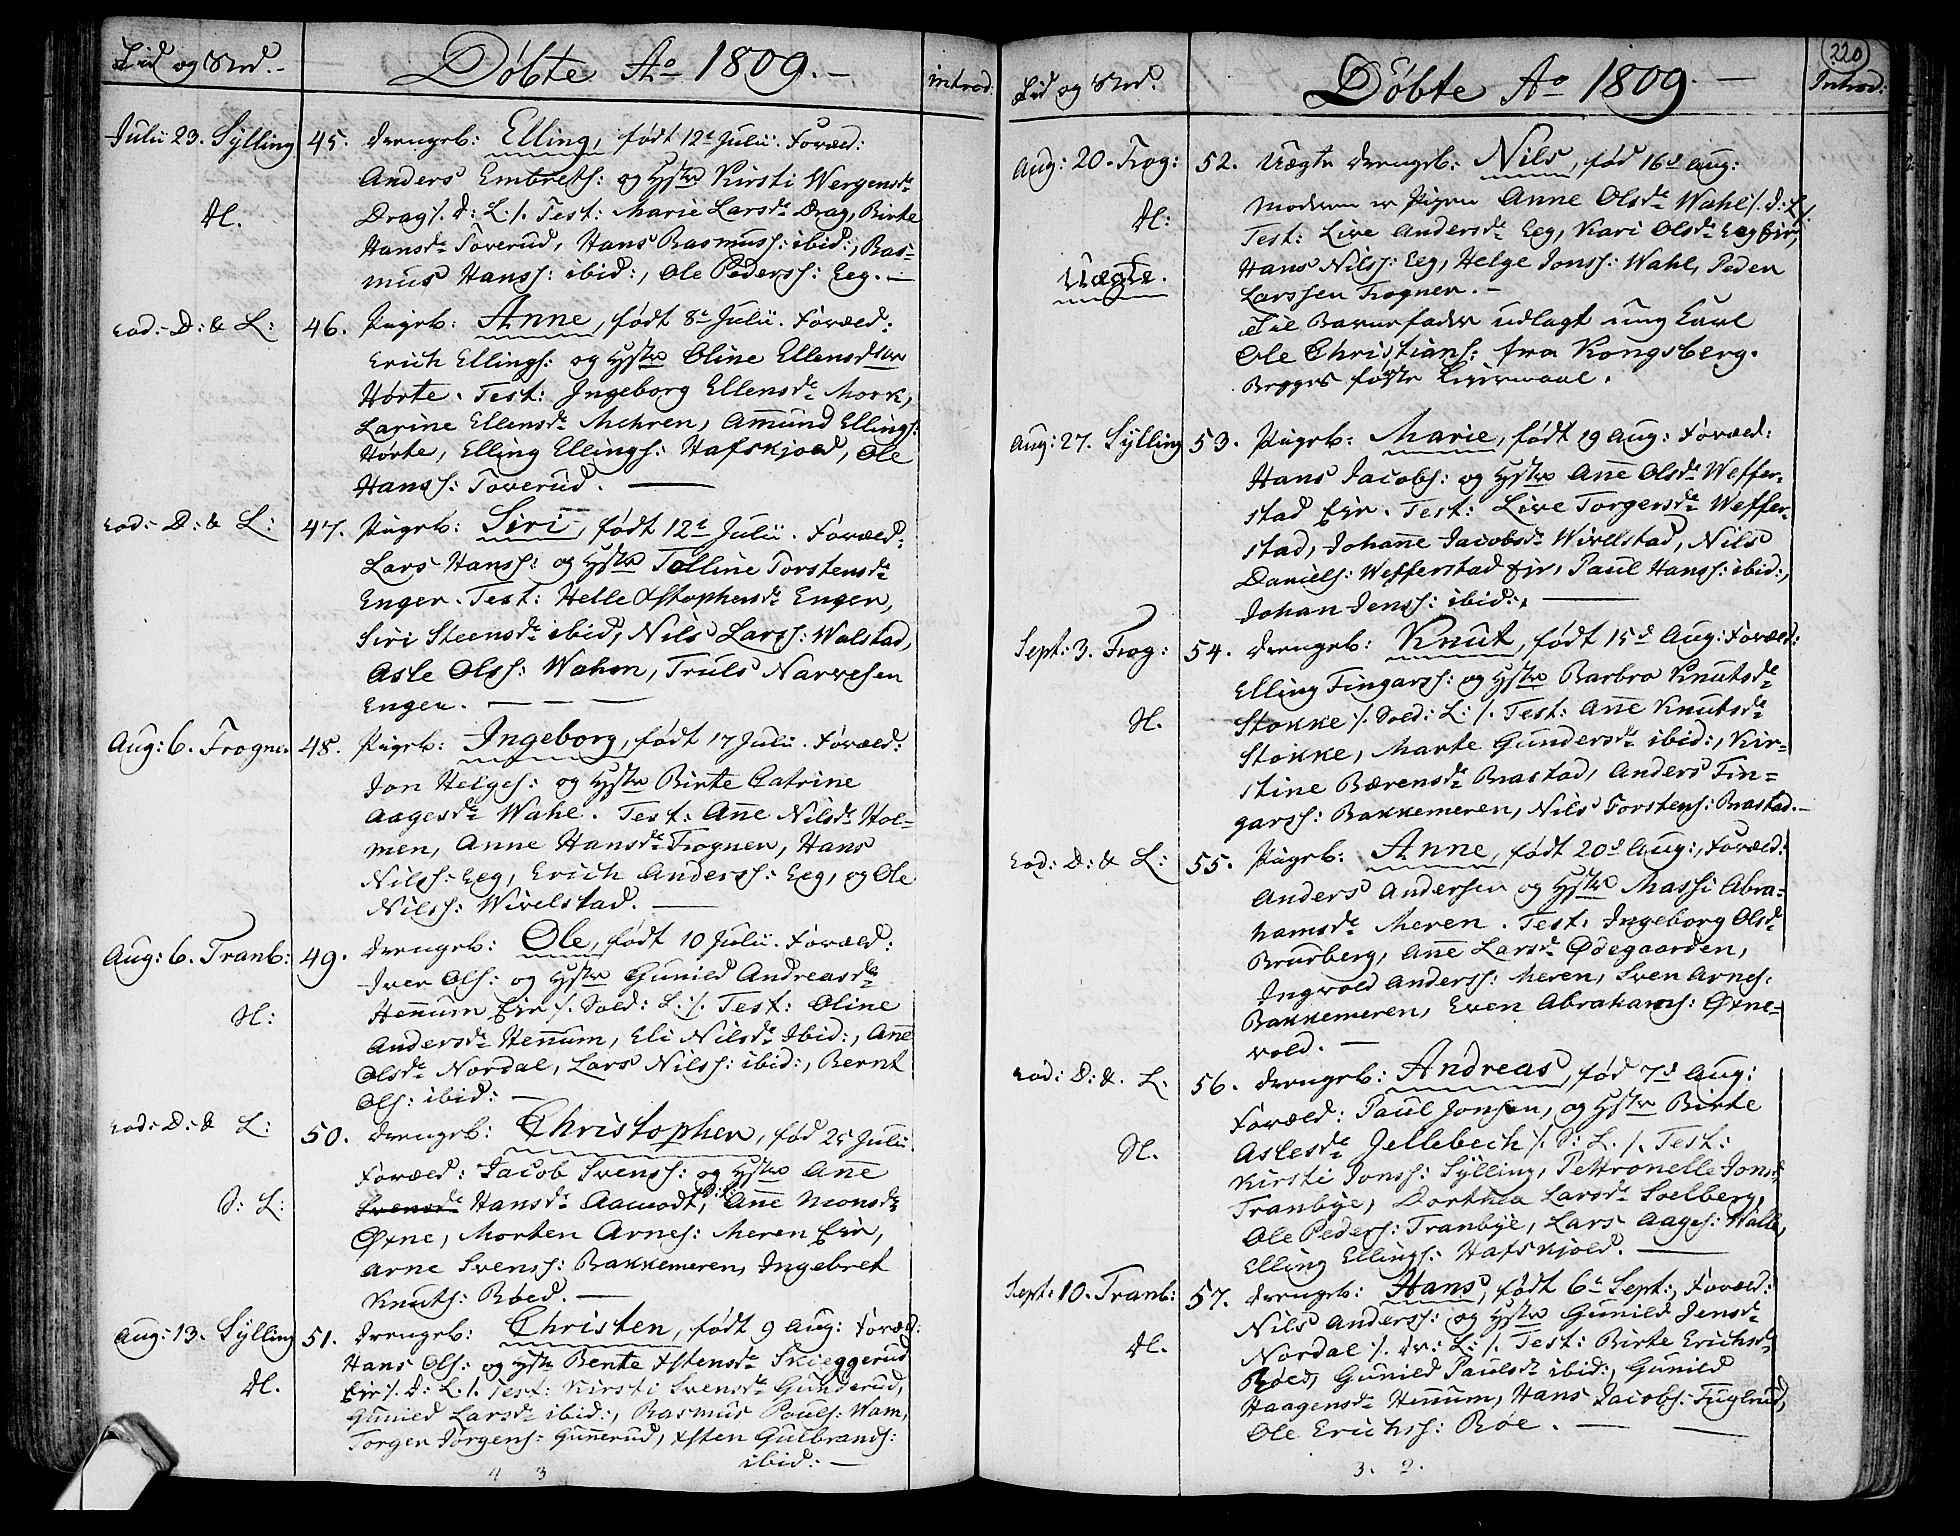 Tid og Sted.
Døbte Ao 1809.
introd:
Julii 23. Sÿlling 45. drengeb: Elling, født 12t Julii. Foræld:
Anders Embretss: og Hstr Kirsti Wergensdr
Drag /. D: L: /. Test: Marie Larsdr Drag, Birte
H.
Hansdr Toverud, Hans Rasmuss: ibid:, Ras=
mus Hanss: ibid:, Ole Pederss: Eeg.
eod:- D: & L: 46. Pigeb: Anne, født 8t Julii. Foræld:
Erich Ellings: og Hstr Oline Ellensdtr
Hørte. Test: Ingeborg Ellensdr Mork,
Larine Ellensdr Mehren, Amund Ellings:
Hørte, Elling Ellings: Hafskjold, Ole
Hanss: Toverud.
eod:- D: & L: 47. Pigeb: Siri, født 12t Julii. Foræld:
Lars Hanss: og Hstr Tolline Torstensdr
Enger. Test: Helle Xstophersdr Enger,
Siri Steensdr ibid, Nils Larss: Walstad,
Asle Olss: Wahen, Truls Narvesen
Enger.
Aug: 6. Frogner 48. Pigeb: Ingeborg, født 17 Julii. Foræld:
Jon Helges: og Hstr Birte Catrine
Aagesdr Wahl. Test: Ane Nilsdr Hol=
men, Anne Hansdr Frogner, Hans
Nilss: Eeg, Erich Anderss: Eeg, og Ole
Nilss: Wivelstad.
Aug: 6. Tranb: 49. Drengeb: Ole, født 10 Julii. Foræld:
Iver Ols: og Hstr Gunild Andreasdr
Henum Eir /. Sold: L: /. Test: Oline
H:
Andersdr Henum, Eli Nilsdr Ibid:, Ane
Olsdr Nordal, Lars Nilss: ibid:, Bernt
Ols: ibid:
eod:- D: & L: 50. drengeb: Christopher, fød 25 Julii
Foræld: Jacob Svenss: og Hstr Ane
S: L: Svensdr Hansdr Aamodt, Ane Monsdr
Øxne, Morten Arnes: Meren Eir,
Arne Svenss: Bakkemeren, Ingebret
Knuts: Røed.
Aug: 13. Sÿlling 51. Drengeb: Christen, født 9 Aug: Foræld:
Hans Ols: og Hstr Bente Xstensdr Skieggerud
H.
Eir /. D: L. /. Test: Kirsti Svensdr Gunderud,
Gunild Larsdr ibid:, Rasmus Pouls: Wam,
Torger Torgens: Gunerud, Xsten Gulbrands:
ibid:
4 3
220
Tid og Sted.
Døbte Ao 1809.
Introd:
Aug: 20. Frog: 52. Uægte drengeb: Nils, fød 16d Aug:
H:
Moderen er Pigen Anne Olsdr Wahl /. D: L /.
Test: Live Andersdr Eeg, Kari Olsdr Eeg Eir,
Uægte.
Hans Nilss: Eeg, Helge Jonss: Wahl, Peder
Larssen Frogner.
Til Barnefader udlagt ung Karl
Ole Christians: fra Kongsberg.
Begges første Leiermaal.
Aug: 27. Sÿlling 53. Pigeb: Marie, født 19 Aug: Foræld:
Hans Jacobs: og Hstr Ane Olsdr Weffer=
stad Eir. Test: Live Torgersdr Weffer=
stad, Johane Jacobsdr Wivelstad, Nils
Daniels: Wefferstad Eir, Paul Hanss: ibid:,
Johan Jenss: ibid:
Sept: 3. Frog: 54. Drengeb: Knut, født 15d Aug: Foræld:
Elling Fingarss: og Hstr Barbro Knutsdr
H.
Stokke /. Sold: L: /. Test: Ane Knutsdr
Stokke, Marte Gundersdr ibid:, Kir=
stine Bærensdr Brastad, Anders Fin=
garss: Bakkemeren, Nils Torstens: Brastad.
eod: D: & L: 55. Pigeb: Anne, født 20d Aug:, Foræld:
Anders Andersen og Hstr Massi Abra=
hamsdr Meren. Test: Ingeborg Olsdr
Brurberg, Ane Larsdr Ødegaarden,
Ingvold Anderss: Meren, Sven Arnes:
Bakkemeren, Even Abrahams: Øxne=
vold.
eod: D: &. L. 56. drengeb: Andreas, fød 7d Aug:
Foræld: Paul Jonsen, og Hstr Birte
H.
Aslesdr Jellebech /. S: L. /. Test:
Kirsti Jonss: Sÿlling, Pettronelle Jonsdr
Tranbÿe, Dorthea Larsdr Solberg,
Ole Peders: Tranbÿe, Lars Aages: Walle,
Elling Ellings: Hafskjold.
Sept: 10. Tranb: 57. Drengeb: Hans, født 6t Sept:, Foræld:
Nils Anderss: og Hstr Gunild Jensdr
H.
Nordal /. dr: L: /. Test: Birte Erichsdr
Røed, Gunild Paulsdr ibid:, Gunild
Haagensdr Henum, Hans Jacobs: Fuglrud,
Ole Erichss: Roe.
3. 2.